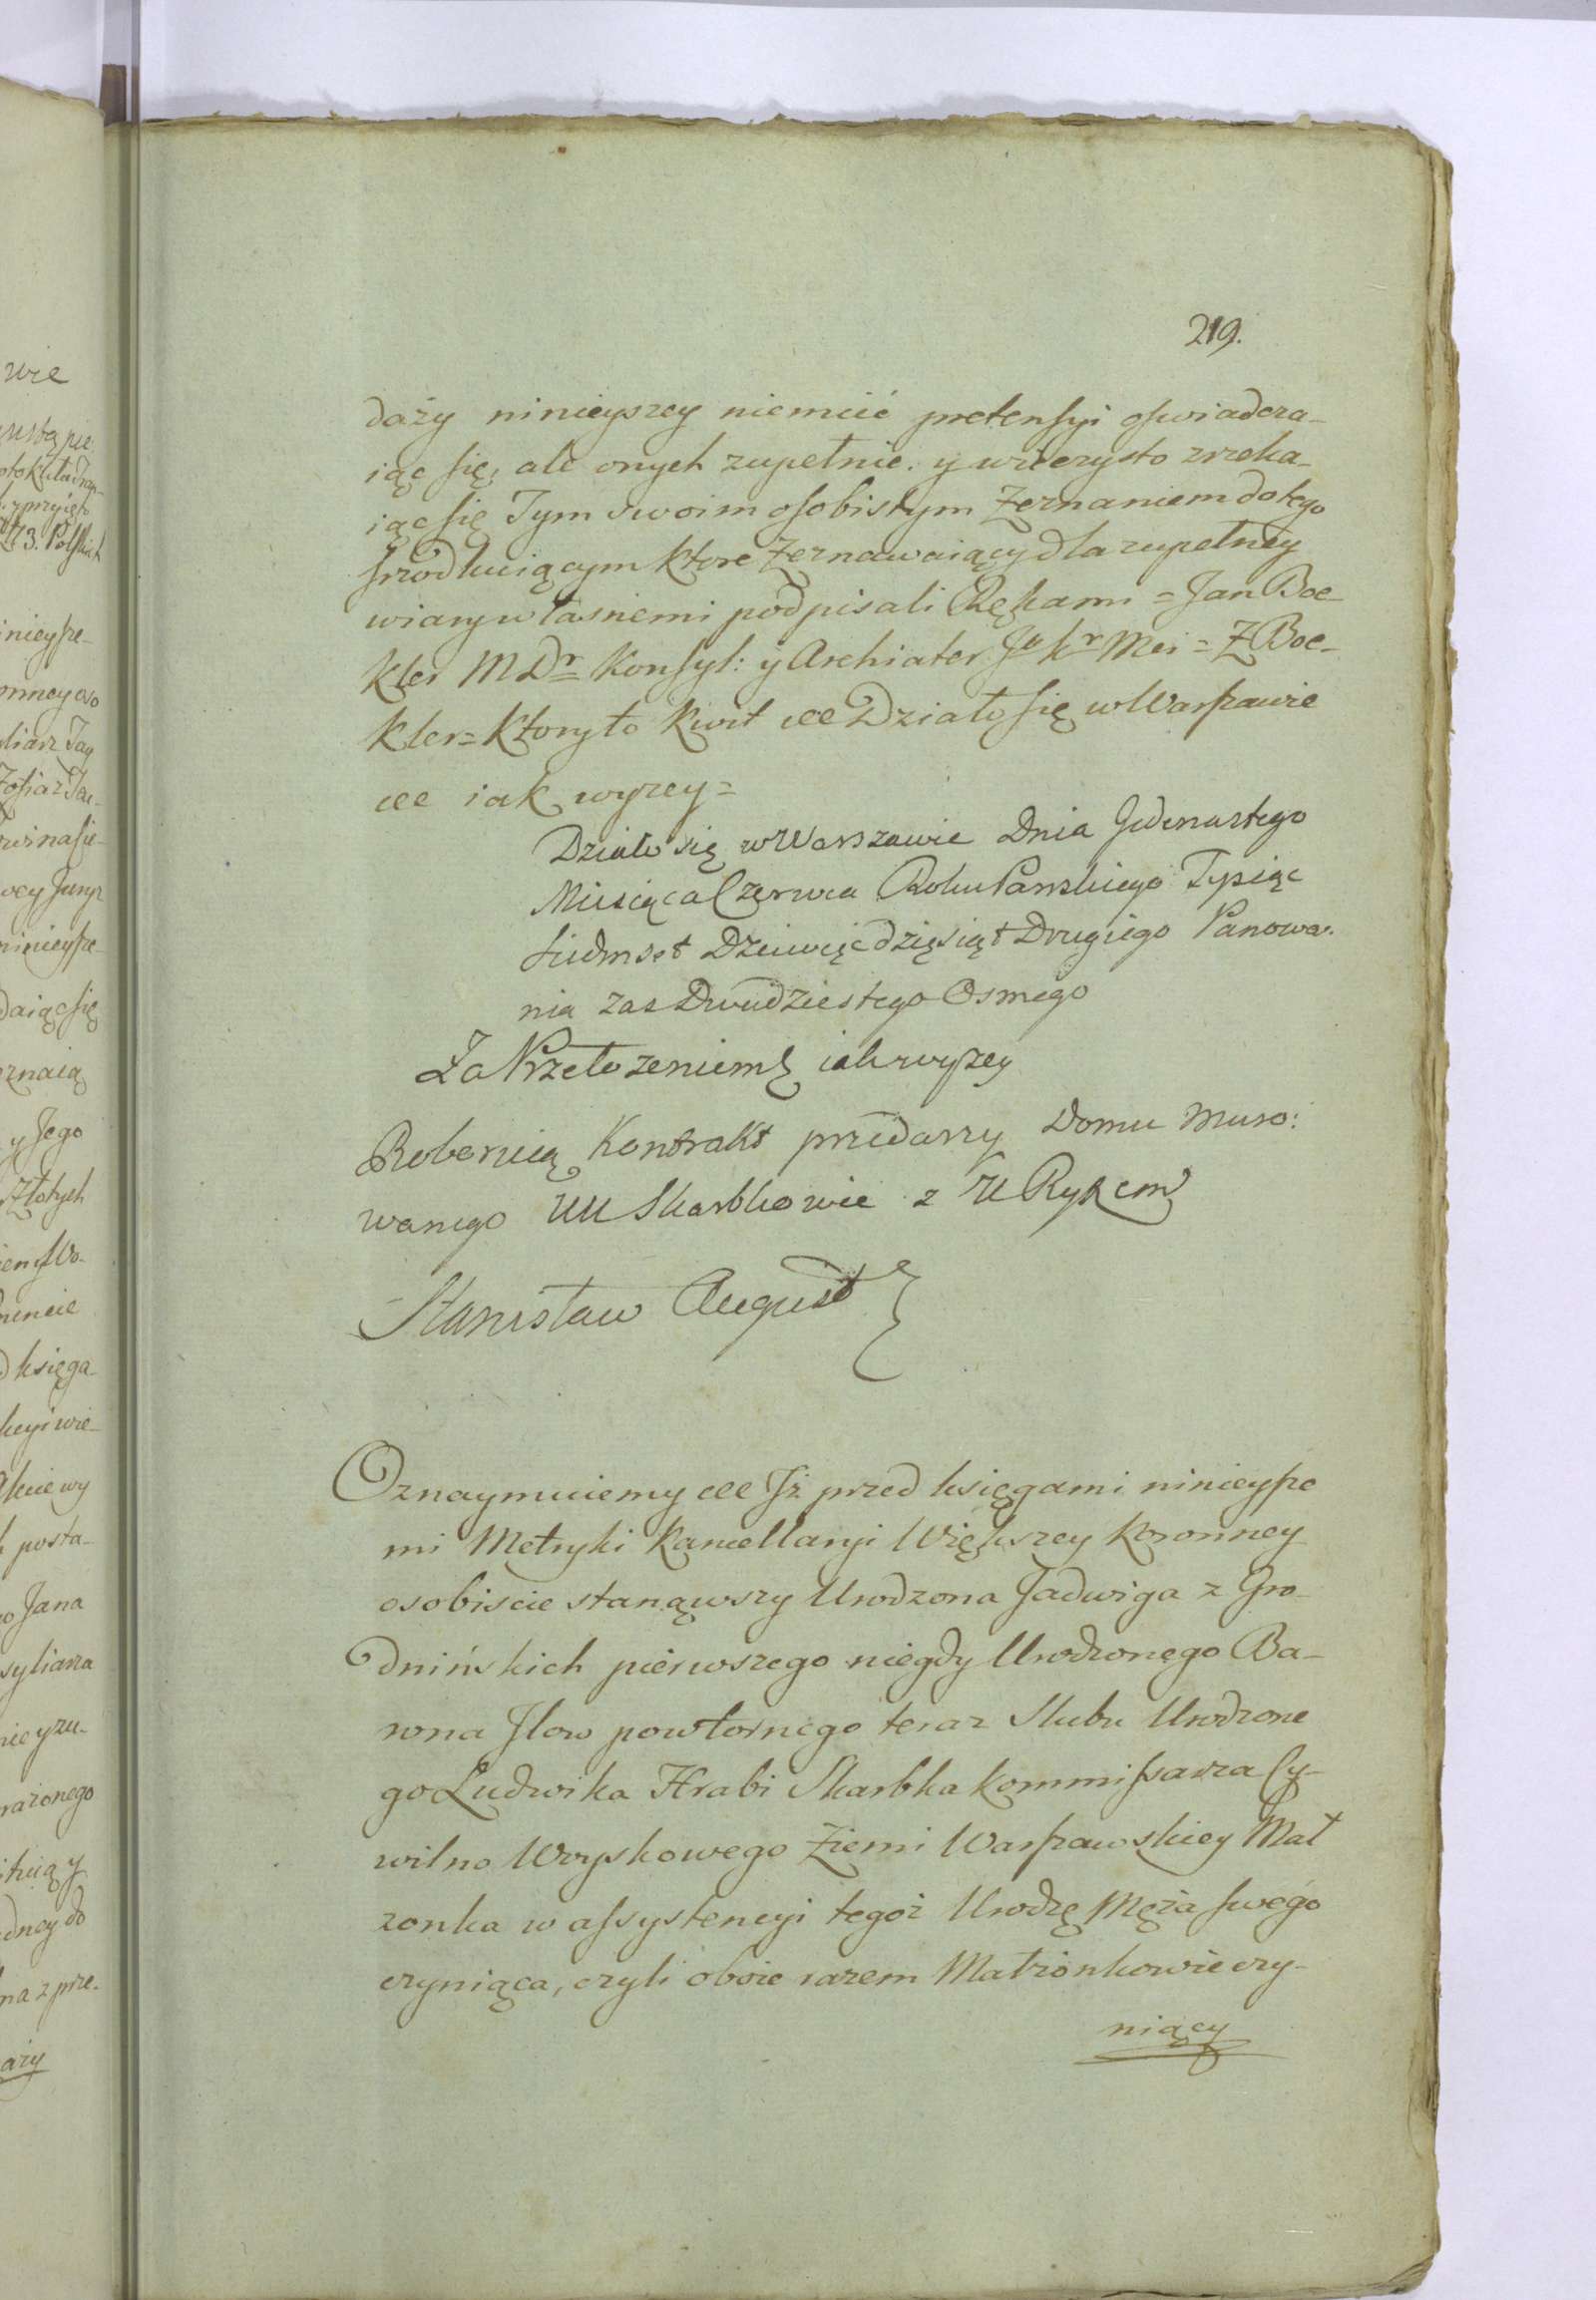 wie
219.
daży ninieyszey niemieć pretensyi oswiadcza-
iąc się, ale onych zupełnie y wieczysto zrzeka-
iąc się Tym swoim osobistym Zeznaniem do tego
srzodkuiącym ktore Zeznawaiący dla zupełney
wiary własnemi podpisali Rękami = Jan Boe-
kler MDr Konsyl: y Archiater Ju kr Mei = Z Boe-
kler = Ktory to Kwit &c Działo się w Warszawie
&c iak wyzey =
Działo się w Warszawie Dnia Jedenastego
Miesiąca Czerwca Roku Panskiego Tysiąc
Siedmset Dziewięcdziesiąt Drugiego Panowa-
nia zas Dwudziestego Osmego
Za Przełozeniem iak wyzey
Roboruią Kontrakt przedazzy Domu Muro:
wanego UU Skarbkowie z U Ryxem
Stanisław August
Oznaymuiemy &c Iż przed księgami ninieysze
mi Metryki Kancellaryi Większey Koronney
osobiscie stanąwszy Urodzona Jadwiga z Gro-
dnińskich pierwszego niegdy Urodzonego Ba-
rona Jlow powtornego teraz slubu Urodzone
go Ludwika Hrabi Skarbka Kommissarza Cy-
wilno Woyskowego Ziemi Warszawskiey Mał
zonka w assystencyi tegoż Urodzę Męża swego
czyniąca, czyli oboie razem Małżonkowie czy-
niący